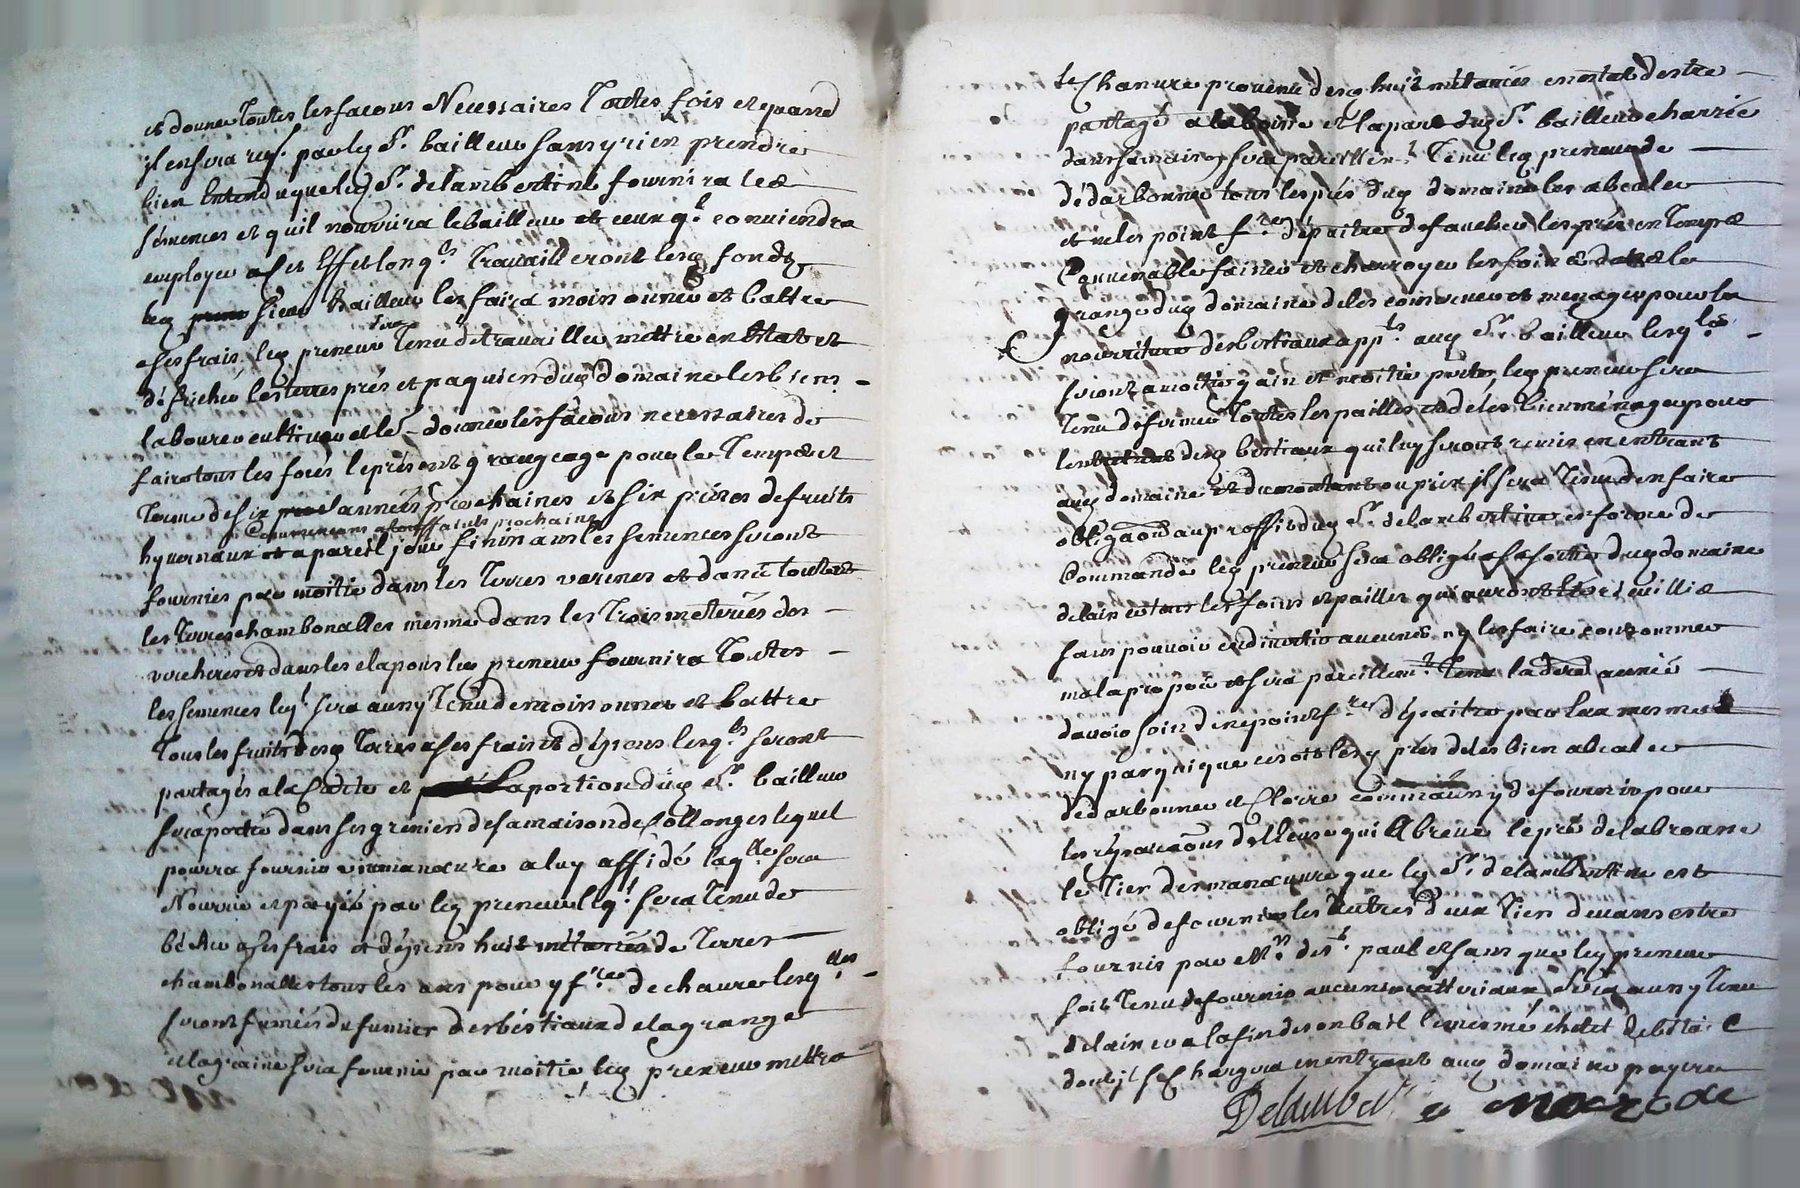 et donner toutes les facons Necessaires toutes fois et quand
il en sera req. par led Sr. bailleur sans y rien prendre
bien Entendu que led Sr. delambertine fournira les
semences et quil nourrira le bailleur et ceux ql conviendra
employer a cet Effet lon qls travailleront lesd fonds
led sieur bailleur les faira moissonner et battre
a ses frais. led preneur sera tenu de travailler mettre en Etat et
défricher les terres prés et paquiers dud domaine les biens
labourer cultiver et le donner les facons necessaires de
faire tous les foins le present grangeage pour le temps et
terme de six années prochaines et six prises de fruits
Commencant a touss saints prochaine
hyvernaux et a pareil jour finissant les semences seront
fournies par moitié dans les terres varenes et dans toutes
les terres chambonalles mesme dans les trois meteriés des
vercheres et dans les led preneur fournira toutes
les semences leql sera aussy tenu de moissonner et battre
tous les fruits desd terres a ses frais et dépens lesqls seront
partagés a la et la portion dud Sr. bailleur
sera portée dans ses greniers de sa maison de Sollonges lequel
pourra fournir un manœuvre a luy affidé laqlle sera
Nourrie et payée par led preneur leql sera tenu de
bécher a ses frais et dépens huit métanées de terres
chambonalles tous les ans pour y fre de chanvre lesqlles
seront fumiés du fumier des béstiaux de la grange
et la graine sera fournie par moitié, led preneur mettra
le Chanvre provenu desd huit métanées en estat destre
partagé a la boine et la part dud Sr. bailleur charriée
dans sa maison sera pareillemt tenu led preneur de
dédarbonner tous les prés dud domaine les abealer
et ne les point fre dépaitre de faucher les prés en temps
Convenable fainer et charroyer les foins dans la
grange dud domaine de les conserver et menager pour la
nourriture des bestiaux appts aud Sr. bailleur lesqls
seront a moitié gain et moitié perte, led preneur sera
tenu de fermer toutes les pailles et de les bien ménager pour
les desd bestiaux qui luy seront remis en entrant
aud domaine et du montant ou prix il sera tenu den faire
obligaon au proffit dud Sr. delambertine en forme de
Commande led preneur sera obligé a sa sortie dud domaine
de laisser tous les foins et pailles qui auront été receuillis
sans pouvoir en divertir aucunes ny les faire consommer
mal a propos et sera pareillemt tenu la dre année
davoir soin de ne point fre dépaitre par luy mesme
ny par qui que ce soit lesd prés de les bien abealer
dédarbonner et Cloire comme aussy de fournir pour
les réparaons de Leluse qui Abreuve le pré de labroane
le tier des manœuvre que led Sr. delambertine est
obligé de fournir les Autres deux tiers devans estre
fournis par Mr. de St. paul et sans que led preneur
soit tenu de fournir aucuns mattériaux Sera aussy tenu
de laisser a la fin de son bail le mesme chetel de bétail
dont il se Chargera en entrant aud domaine payera
Delambert